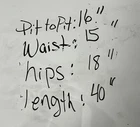 Pit to Pit: 16"
Waist: 15"
hips: 18"
length: 40"